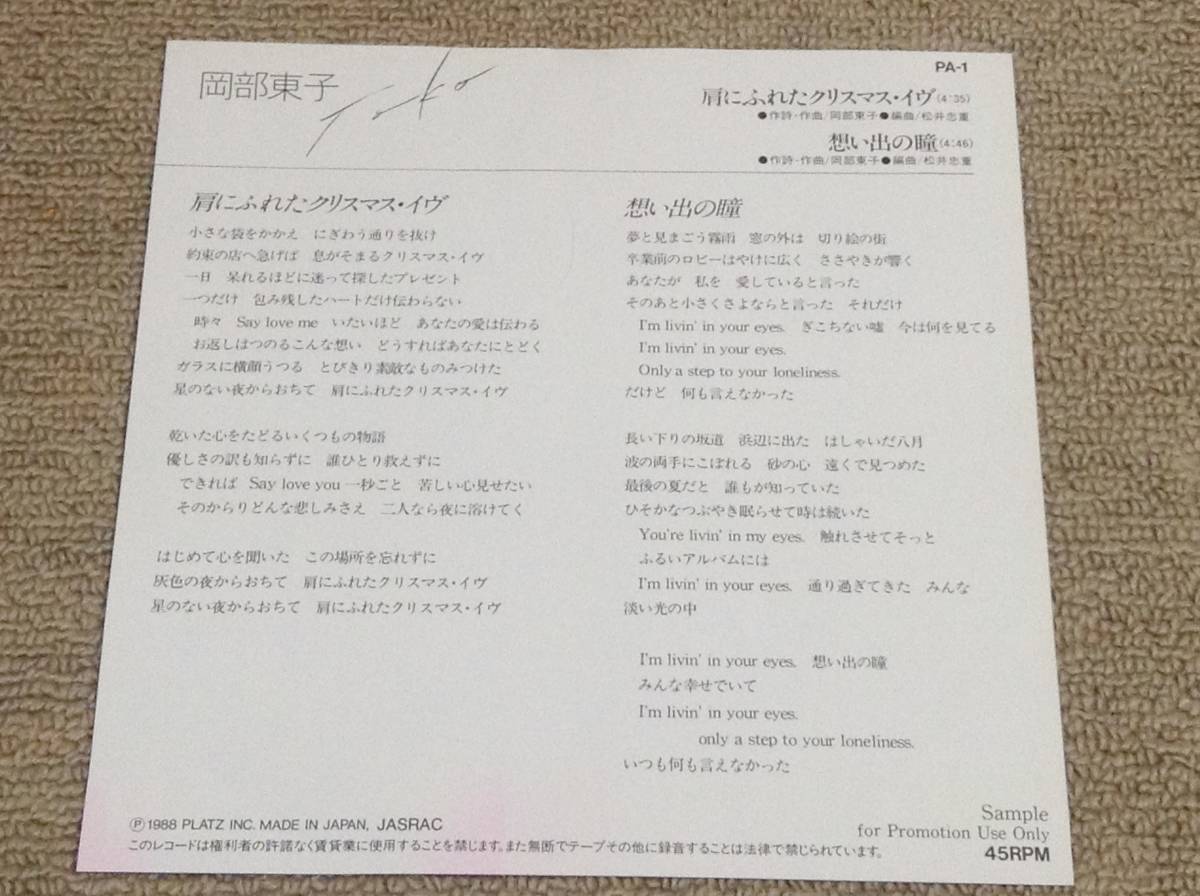 岡部東子
Toko
PA-1
肩にふれたクリスマス・イヴ(4:35)
●作詩・作曲/岡部東子●編曲/松井忠重
想い出の瞳(4:46)
●作詩・作曲/岡部東子●編曲/松井忠重
肩にふれたクリスマス・イヴ
小さな袋をかかえ　にぎわう通りを抜け
約束の店へ急げば　息がそまるクリスマス・イヴ
一日　呆れるほどに迷って探したプレゼント
一つだけ　包み残したハートだけ伝わらない
時々　Say love me　いたいほど　あなたの愛は伝わる
お返しはつのるこんな想い　どうすればあなたにとどく
ガラスに横顔うつる　とびきり素敵なものみつけた
星のない夜からおちて　肩にふれたクリスマス・イヴ
乾いた心をたどるいくつもの物語
優しさの訳も知らずに　誰ひとり救えずに
できれば　Say love you 一秒ごと　苦しい心見せたい
そのかわりどんな悲しみさえ　二人なら夜に溶けてく
はじめて心を聞いた　この場所を忘れずに
灰色の夜からおちて　肩にふれたクリスマス・イヴ
星のない夜からおちて　肩にふれたクリスマス・イヴ
想い出の瞳
夢と見まごう霧雨　窓の外は　切り絵の街
卒業前のロビーはやけに広く　ささやきが響く
あなたが　私を　愛していると言った
そのあと小さくさよならと言った　それだけ
I'm livin' in your eyes.　ぎこちない嘘　今は何を見てる
I'm livin' in your eyes.
Only a step to your loneliness.
だけど　何も言えなかった
長い下りの坂道　浜辺に出た　はしゃいだ八月
波の両手にこぼれる　砂の心　遠くで見つめた
最後の夏だと　誰もが知っていた
ひそかなつぶやき眠らせて時は続いた
You're livin' in my eyes.　触れさせてそっと
ふるいアルバムには
I'm livin' in your eyes.　通り過ぎてきた　みんな
淡い光の中
I'm livin' in your eyes.　想い出の瞳
みんな幸せでいて
I'm livin' in your eyes.
only a step to your loneliness.
いつも何も言えなかった
Ⓟ1988 PLATZ INC. MADE IN JAPAN, JASRAC
このレコードは権利者の許諾なく賃貸業に使用することを禁じます。また無断でテープその他に録音することは法律で禁じられています。
Sample
for Promotion Use Only
45RPM